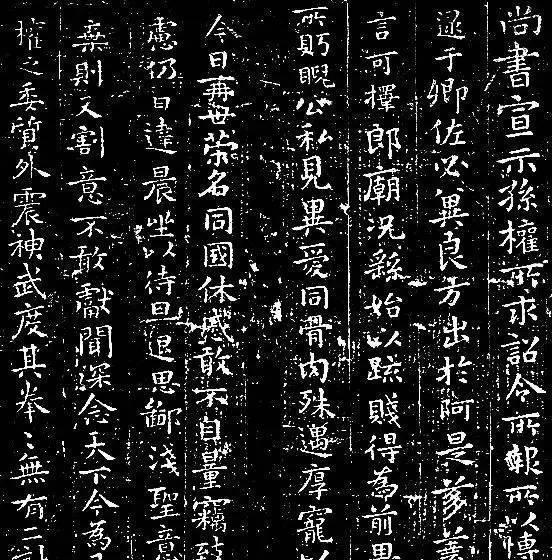 尚書宣示孫權所求詔令所報所以博
逮于卿佐必冀良方出於阿是芻蕘
言可擇郎廟況繇始以疏賤得為前恩
所眄睨公私見異愛同骨肉殊遇厚寵以
今日再世榮名同國休慼敢不自量竊致
慮仍日達晨坐以待旦退思鄙淺聖意
棄則又割意不敢獻聞深念天下今為
權之委質外震神武度其拳〻無有二計